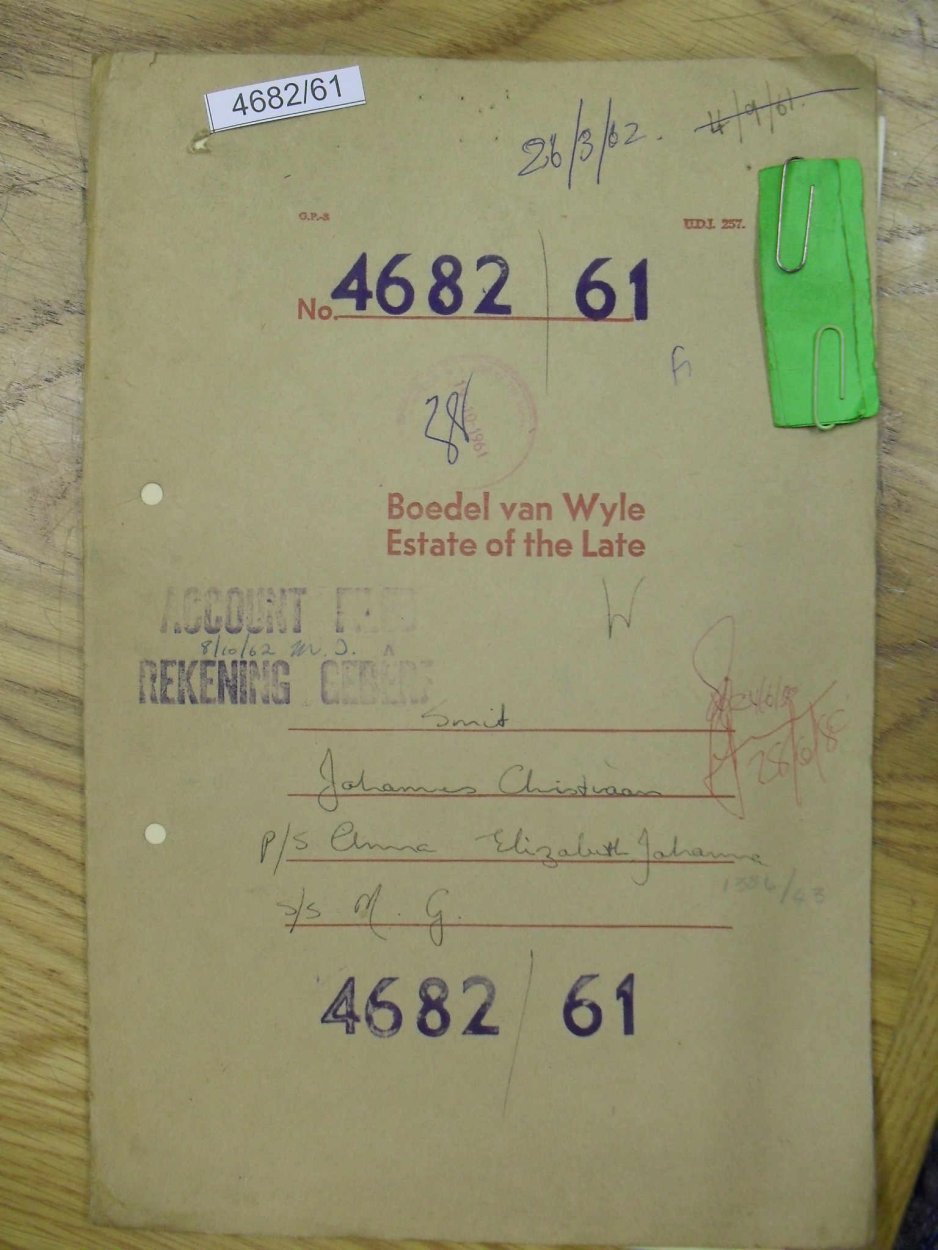 4682/61
26/3/62. 4/9/61.
G.P.-S U.D.J. 257.
No. 4682 61
28
1961
Boedel van Wyle
Estate of the Late
W
ACCOUNT FILED
8/10/62 M. J.
REKENING
Smit
Johannes Christiaan
p/s Anna Elizabeth Johanna
s/s M. G.
4682 61